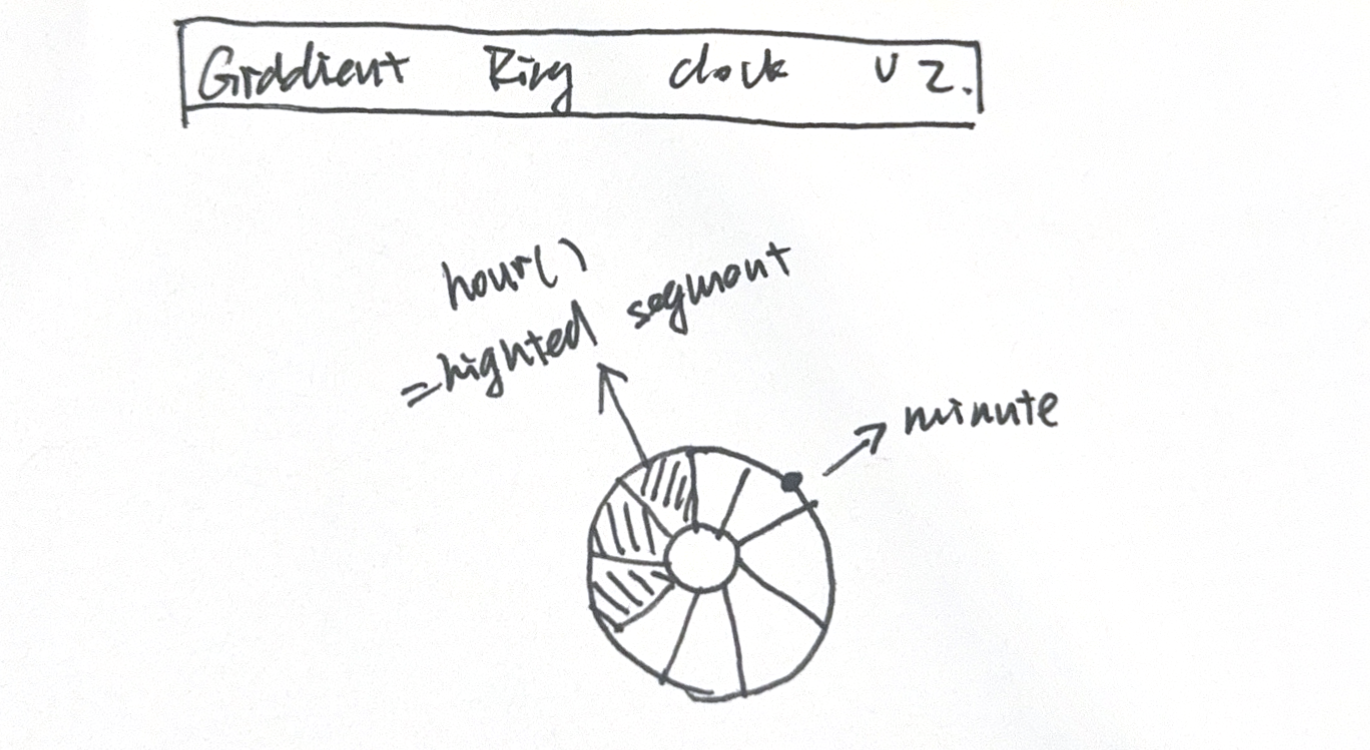 Graddient Ring clock V2.
hour()
=highted segment
minute